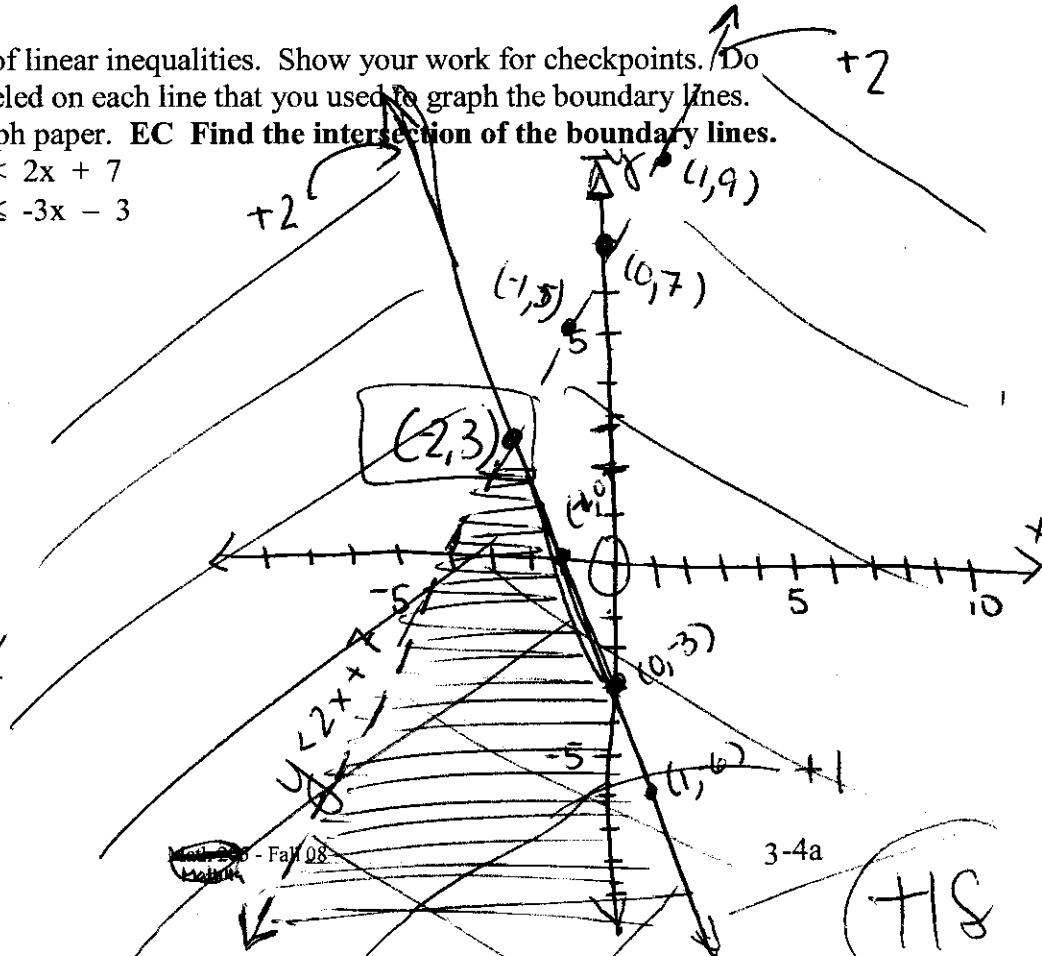 of linear inequalities. Show your work for checkpoints. Do
eled on each line that you used to graph the boundary lines.
ph paper. EC Find the intersection of the boundary lines.
< 2x + 7
≤ -3x – 3
+2
+2
y
(1,9)
(0,7)
(-1,5)
5
(-2,3)
x
-5
5
10
(0,-3)
y < 2x +
-5
+1
- Fall 08
3-4a
+18